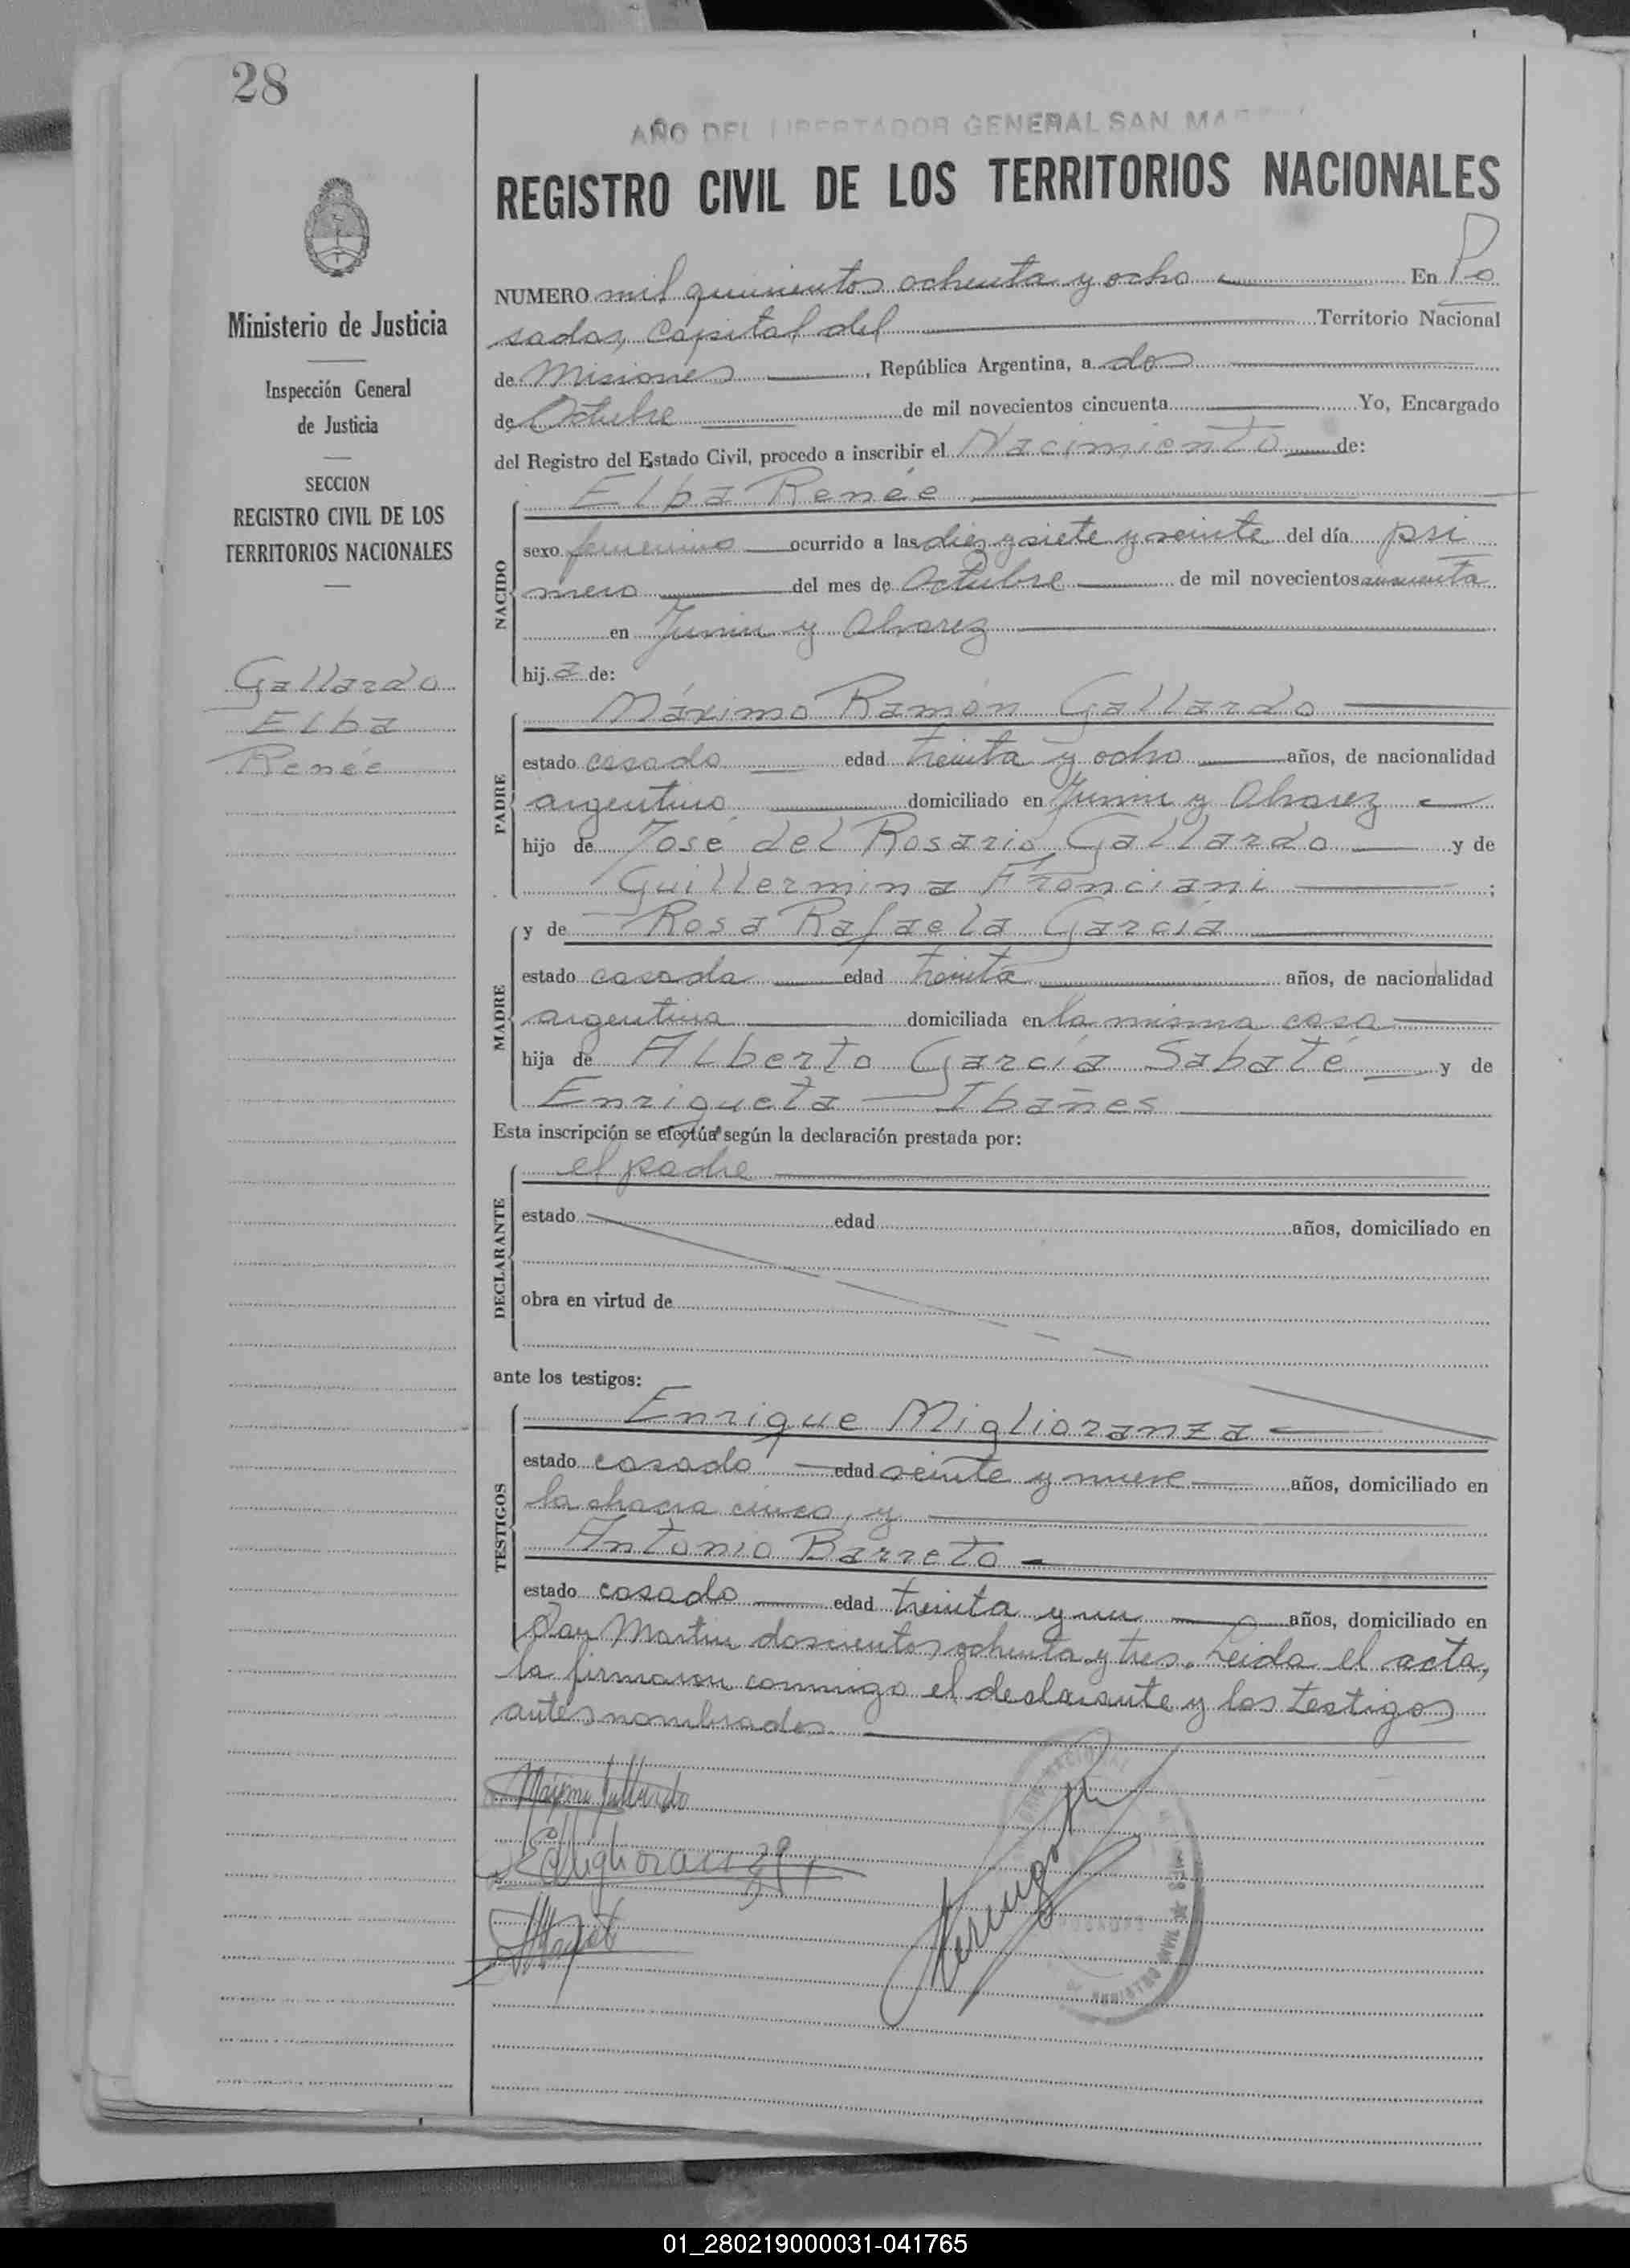 28
AÑO DEL LIBERTADOR GENERAL SAN
REGISTRO CIVIL DE LOS TERRITORIOS NACIONALES
Ministerio de Justicia
Inspección General
de Justicia
SECCION
REGISTRO CIVIL DE LOS
TERRITORIOS NACIONALES
Gallardo
Elba
Renée
NUMERO mil quinientos ochenta y ocho En Po
sadas, Capital del Territorio Nacional
de Misiones, República Argentina, a dos
de Octubre de mil novecientos cincuenta Yo, Encargado
del Registro del Estado Civil, procedo a inscribir el Nacimiento de:
NACIDO
Elba Renée
sexo femenino ocurrido a las diez y siete y veinte del día pri
mero del mes de Octubre de mil novecientos cincuenta
en Junin y Alvarez
hija de:
PADRE
Máximo Ramón Gallardo
estado casado edad treinta y ocho años, de nacionalidad
argentino domiciliado en Junin y Alvarez
hijo de José del Rosario Gallardo y de
Guillermina Franciani;
MADRE
y de Rosa Rafaela García
estado casada edad treinta años, de nacionalidad
argentina domiciliada en la misma casa
hija de Alberto García Sabaté y de
Enriqueta Ibañes
Esta inscripción se efectúa según la declaración prestada por:
DECLARANTE
el padre
estado edad años, domiciliado en
obra en virtud de
ante los testigos:
TESTIGOS
Enrique Miglioranza
estado casado edad veinte y nueve años, domiciliado en
la chacra cinco, y
Antonio Barreto
estado casado edad treinta y un años, domiciliado en
San Martin doscientos ochenta y tres. Leida el acta,
la firmaron conmigo el declarante y los testigos
antes nombrados.
Máximo Gallardo
EMiglioranza
REGISTRO CIVIL
01_280219000031-041765